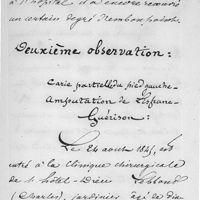 à l'hôpital d'a encore recouvré
un certain degré d'embonpoint.
Deuxième observation:
Carie partielle du pied gauche -
Amputation de Lisfranc -
Guérison:
Le 24 août 1845, est
entré à la clinique chirurgicale
de l'hôtel-Dieu Leblond
(Charles), jardinier agé de